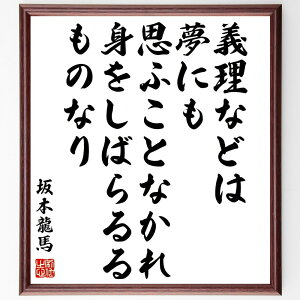 義理などは
夢にも
思ふことなかれ
身をしばらるる
ものなり
坂本龍馬